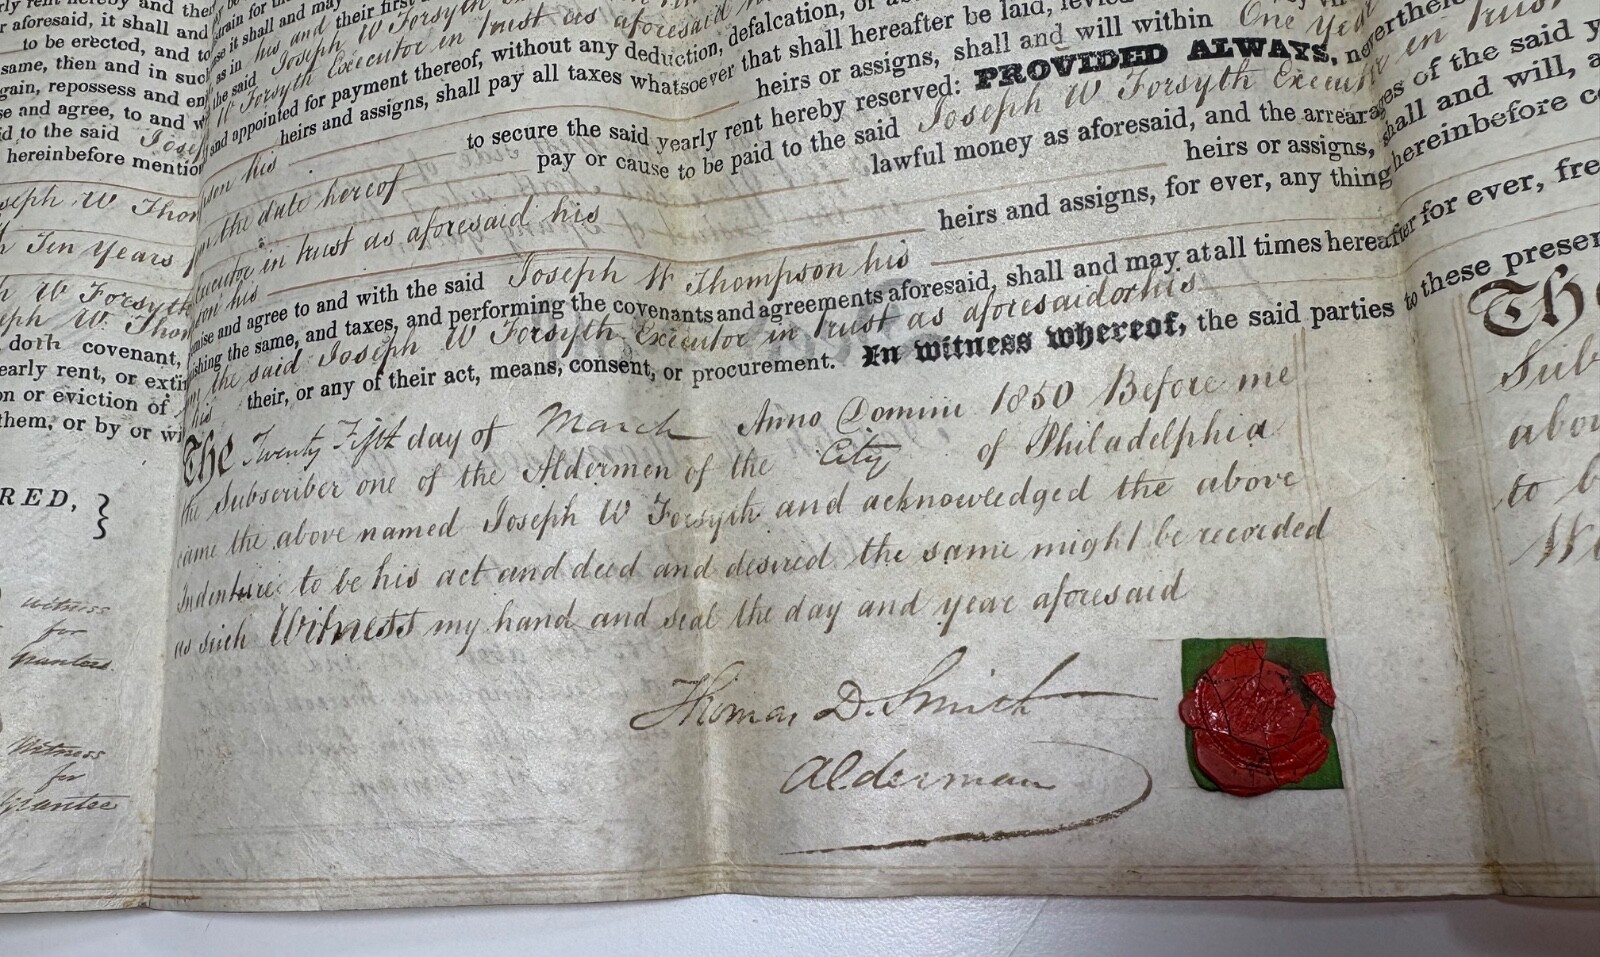 rly rent hereby and ther
r aforesaid, it shall and
to be erected, and to
same, then and in suc
gain, repossess and en
se and agree, to and w
id to the said Josep
hereinbefore mentio
oseph W Thom
n Ten Years
h W Forsyth
eph W. Thom
doth covenant,
early rent, or exti
on or eviction of
them, or by or wi
RED, }
Witness
for
Grantors.
Witness
for
Grantee
Joseph W Forsyth
the said Joseph W Forsyth
W Forsyth Executor in trust as aforesaid
and appointed for payment thereof, without any deduction, defalcation, or
heirs and assigns, shall pay all taxes whatsoever that shall hereafter be laid,
heirs or assigns, shall and will within One Year
to secure the said yearly rent hereby reserved: PROVIDED ALWAYS, nevertheless
pson his pay or cause to be paid to the said Joseph W Forsyth Executor in trust
m the date hereof lawful money as aforesaid, and the arrearages of the said y
ecutor in trust as aforesaid his heirs or assigns, shall and will,
son his heirs and assigns, for ever, any thing hereinbefore co
mise and agree to and with the said Joseph W Thompson his
ishing the same, and taxes, and performing the covenants and agreements aforesaid, shall and may at all times hereafter for ever, fre
the said Joseph W Forsyth Executor in trust as aforesaid or his
his their, or any of their act, means, consent, or procurement. In witness whereof, the said parties to these presen
The Twenty Fifth day of March Anno Domini 1850 Before me
the Subscriber one of the Aldermen of the City of Philadelphia
came the above named Joseph W Forsyth and acknowledged the above
Indenture to be his act and deed and desired the same might be recorded
as such Witness my hand and seal the day and year aforesaid
Thomas D. Smith
Alderman
The
Sub
abov
to b